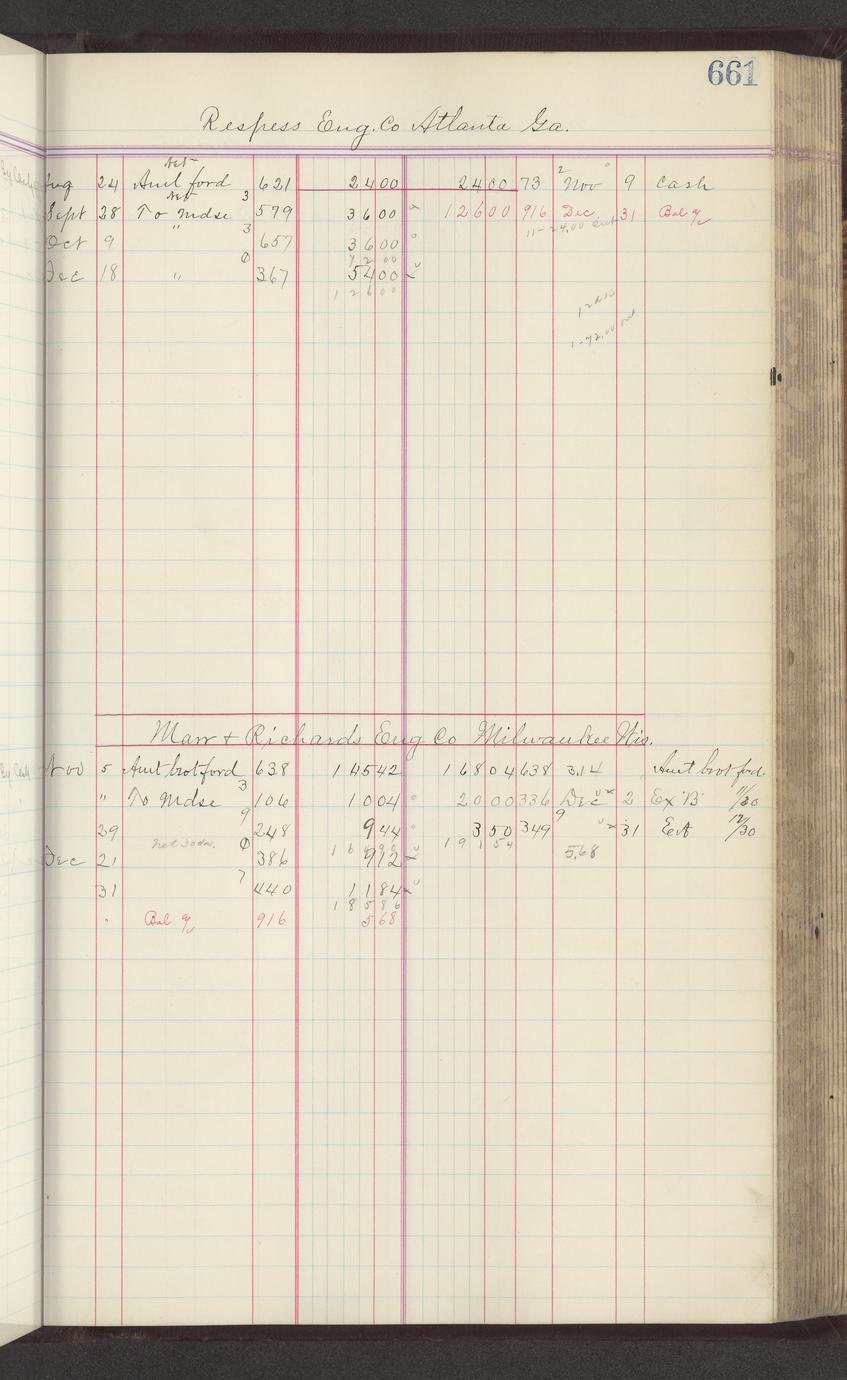 661
Respess Eng. Co Atlanta Ga.
Net
Aug 24 Amt ford 621 2400 2400 73 2 Nov 9 Cash
Net 3
Sept 28 To Mdse 579 3600 12600 916 Dec 31 Bal
11-24.00
Oct 9 " 3 657 3600
7200
Dec 18 " 0 367 5400
12600
1-72.00
Marr & Richards Eng Co Milwaukee Wis.
Nov 5 Amt brot ford 638 14542 16804 638 3.14 Amt brot ford.
" To Mdse 3 106 1004 2000 336 Dec 2 Ex "B" 11/30
29 9 248 944 350 349 9 31 Ex A 12/30
Net 30 ds. 19154
Dec 21 0 386 912 5.68
31 7 440 1184
18586
" Bal 916 568